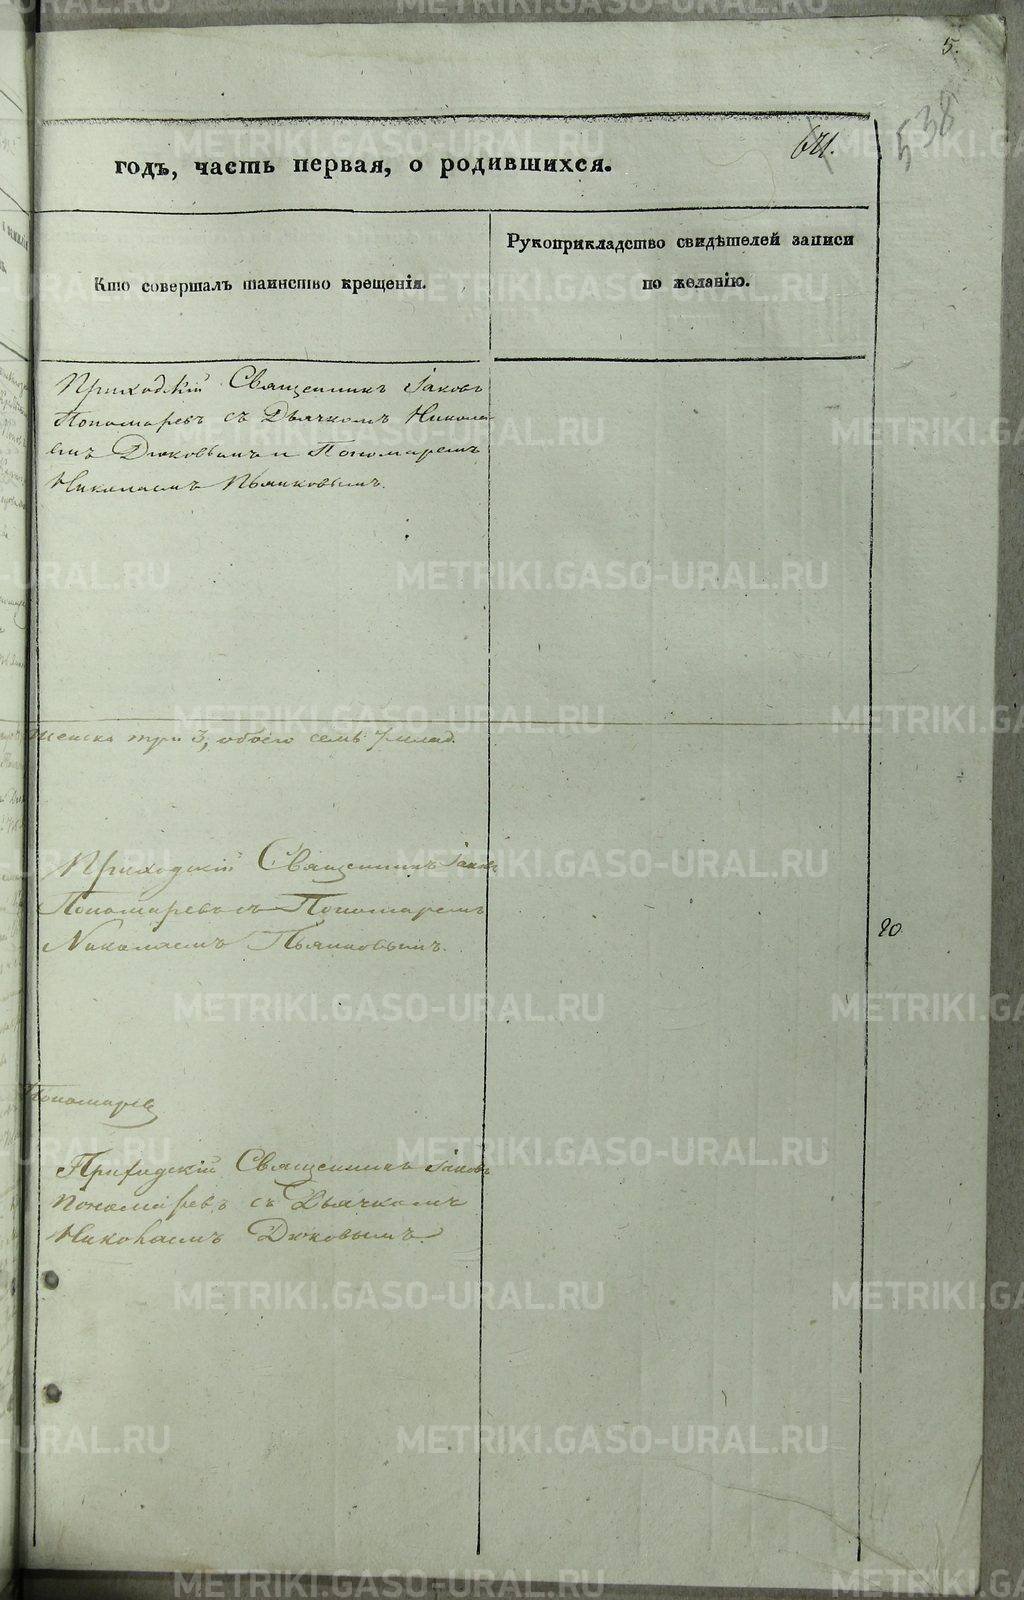 5.
538
641.
годъ, часть первая, о родившихся.
Кто совершалъ таинство крещенія.
Рукоприкладство свидѣтелей записи
по желанію.
Приходскій Священникъ Іаковъ
Пономаревъ съ Дьячкомъ Никола-
емъ Дюковымъ и Пономаремъ
Николаемъ Пьянковымъ.
женска три 3, обоего семь 7 млад.
Приходскій Священникъ Іаковъ
Пономаревъ съ Пономаремъ
Николаемъ Пьянковымъ.
20.
Пономарев
Приходскій Священникъ Іаковъ
Пономаревъ съ Дьячкомъ
Николаемъ Дюковымъ.
METRIKI.GASO-URAL.RU